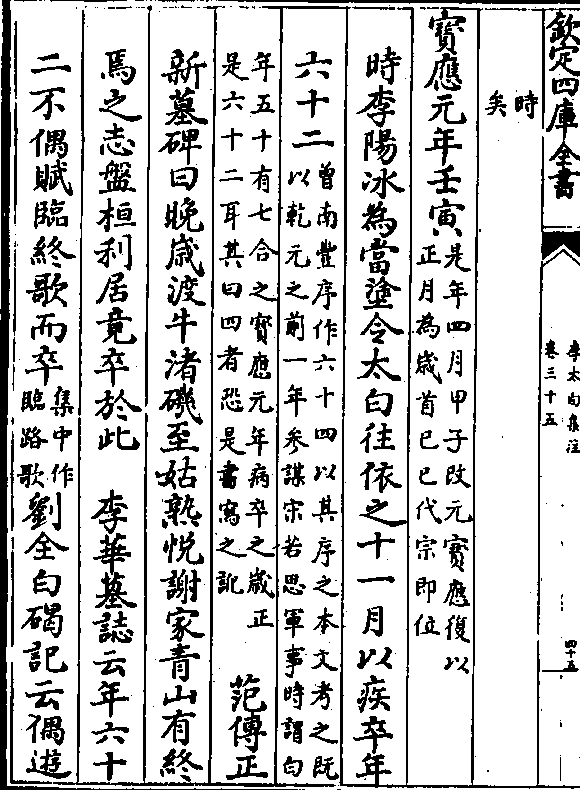 欽定四庫全書
李太白集注
卷三十五
四十五
時
矣
寶應元年壬寅
是年四月甲子改元寶應復以
正月為歲首已巳代宗即位
時李陽冰為當塗令太白往依之十一月以疾卒年
六十二
曾南豐序作六十四以其序之本文考之既
以乾元之前一年參謀宋若思軍事時謂白
年五十有七合之寶應元年病卒之歲正
是六十二耳其曰四者恐是書寫之訛
范傳正
新墓碑曰晚歲渡牛渚磯至姑熟悅謝家青山有終
焉之志盤桓利居竟卒於此 李華墓誌云年六十
二不偶賦臨終歌而卒
集中作
臨路歌
劉全白碣記云偶遊